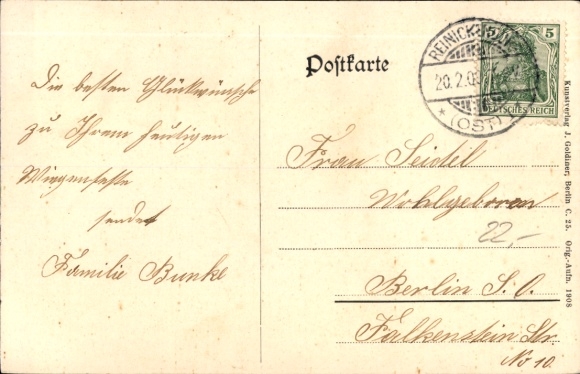 Die besten Glückwünsche
zu Ihrem heutigen
Wiegenfeste
sendet
Familie Bunke
Postkarte
20.2.09
* (OST) *
5
DEUTSCHES REICH
Frau Seidel
Wohlgeboren
22,-
Berlin S.O.
Falkenstein Str.
No 10.
Kunstverlag J. Goldiner, Berlin C. 25. Orig.-Aufn. 1908